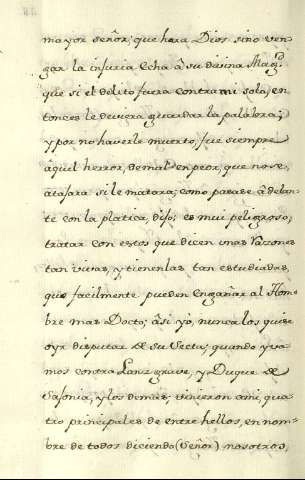 mayor señor, que hera Dios sino ven-
gar la injuria echa â su divina Magd.
que si el delito fuera contra mi solo, en-
tonces le deviera guardar la palabra;
y por no haverle muerto, fue siempre
aquel herror, de mal en peor, que no se
atajara si le matara; como pasase â delan-
te con la platica, dijo; es mui peligroso,
tratar con estos que dicen unas Razones
tan vivas, y tienenlas tan estudiadas,
que facilmente pueden engañar al Hom-
bre mas Docto; âsi yo, nunca los quise
oyr disputar de su Secta; quando yva-
mos contra Lanzgrave, y Duque de
Sajonia, y los demas; vinieron ami, qua-
tro principales de entre hellos, en nom-
bre de todos diciendo (Señor) nosotros,